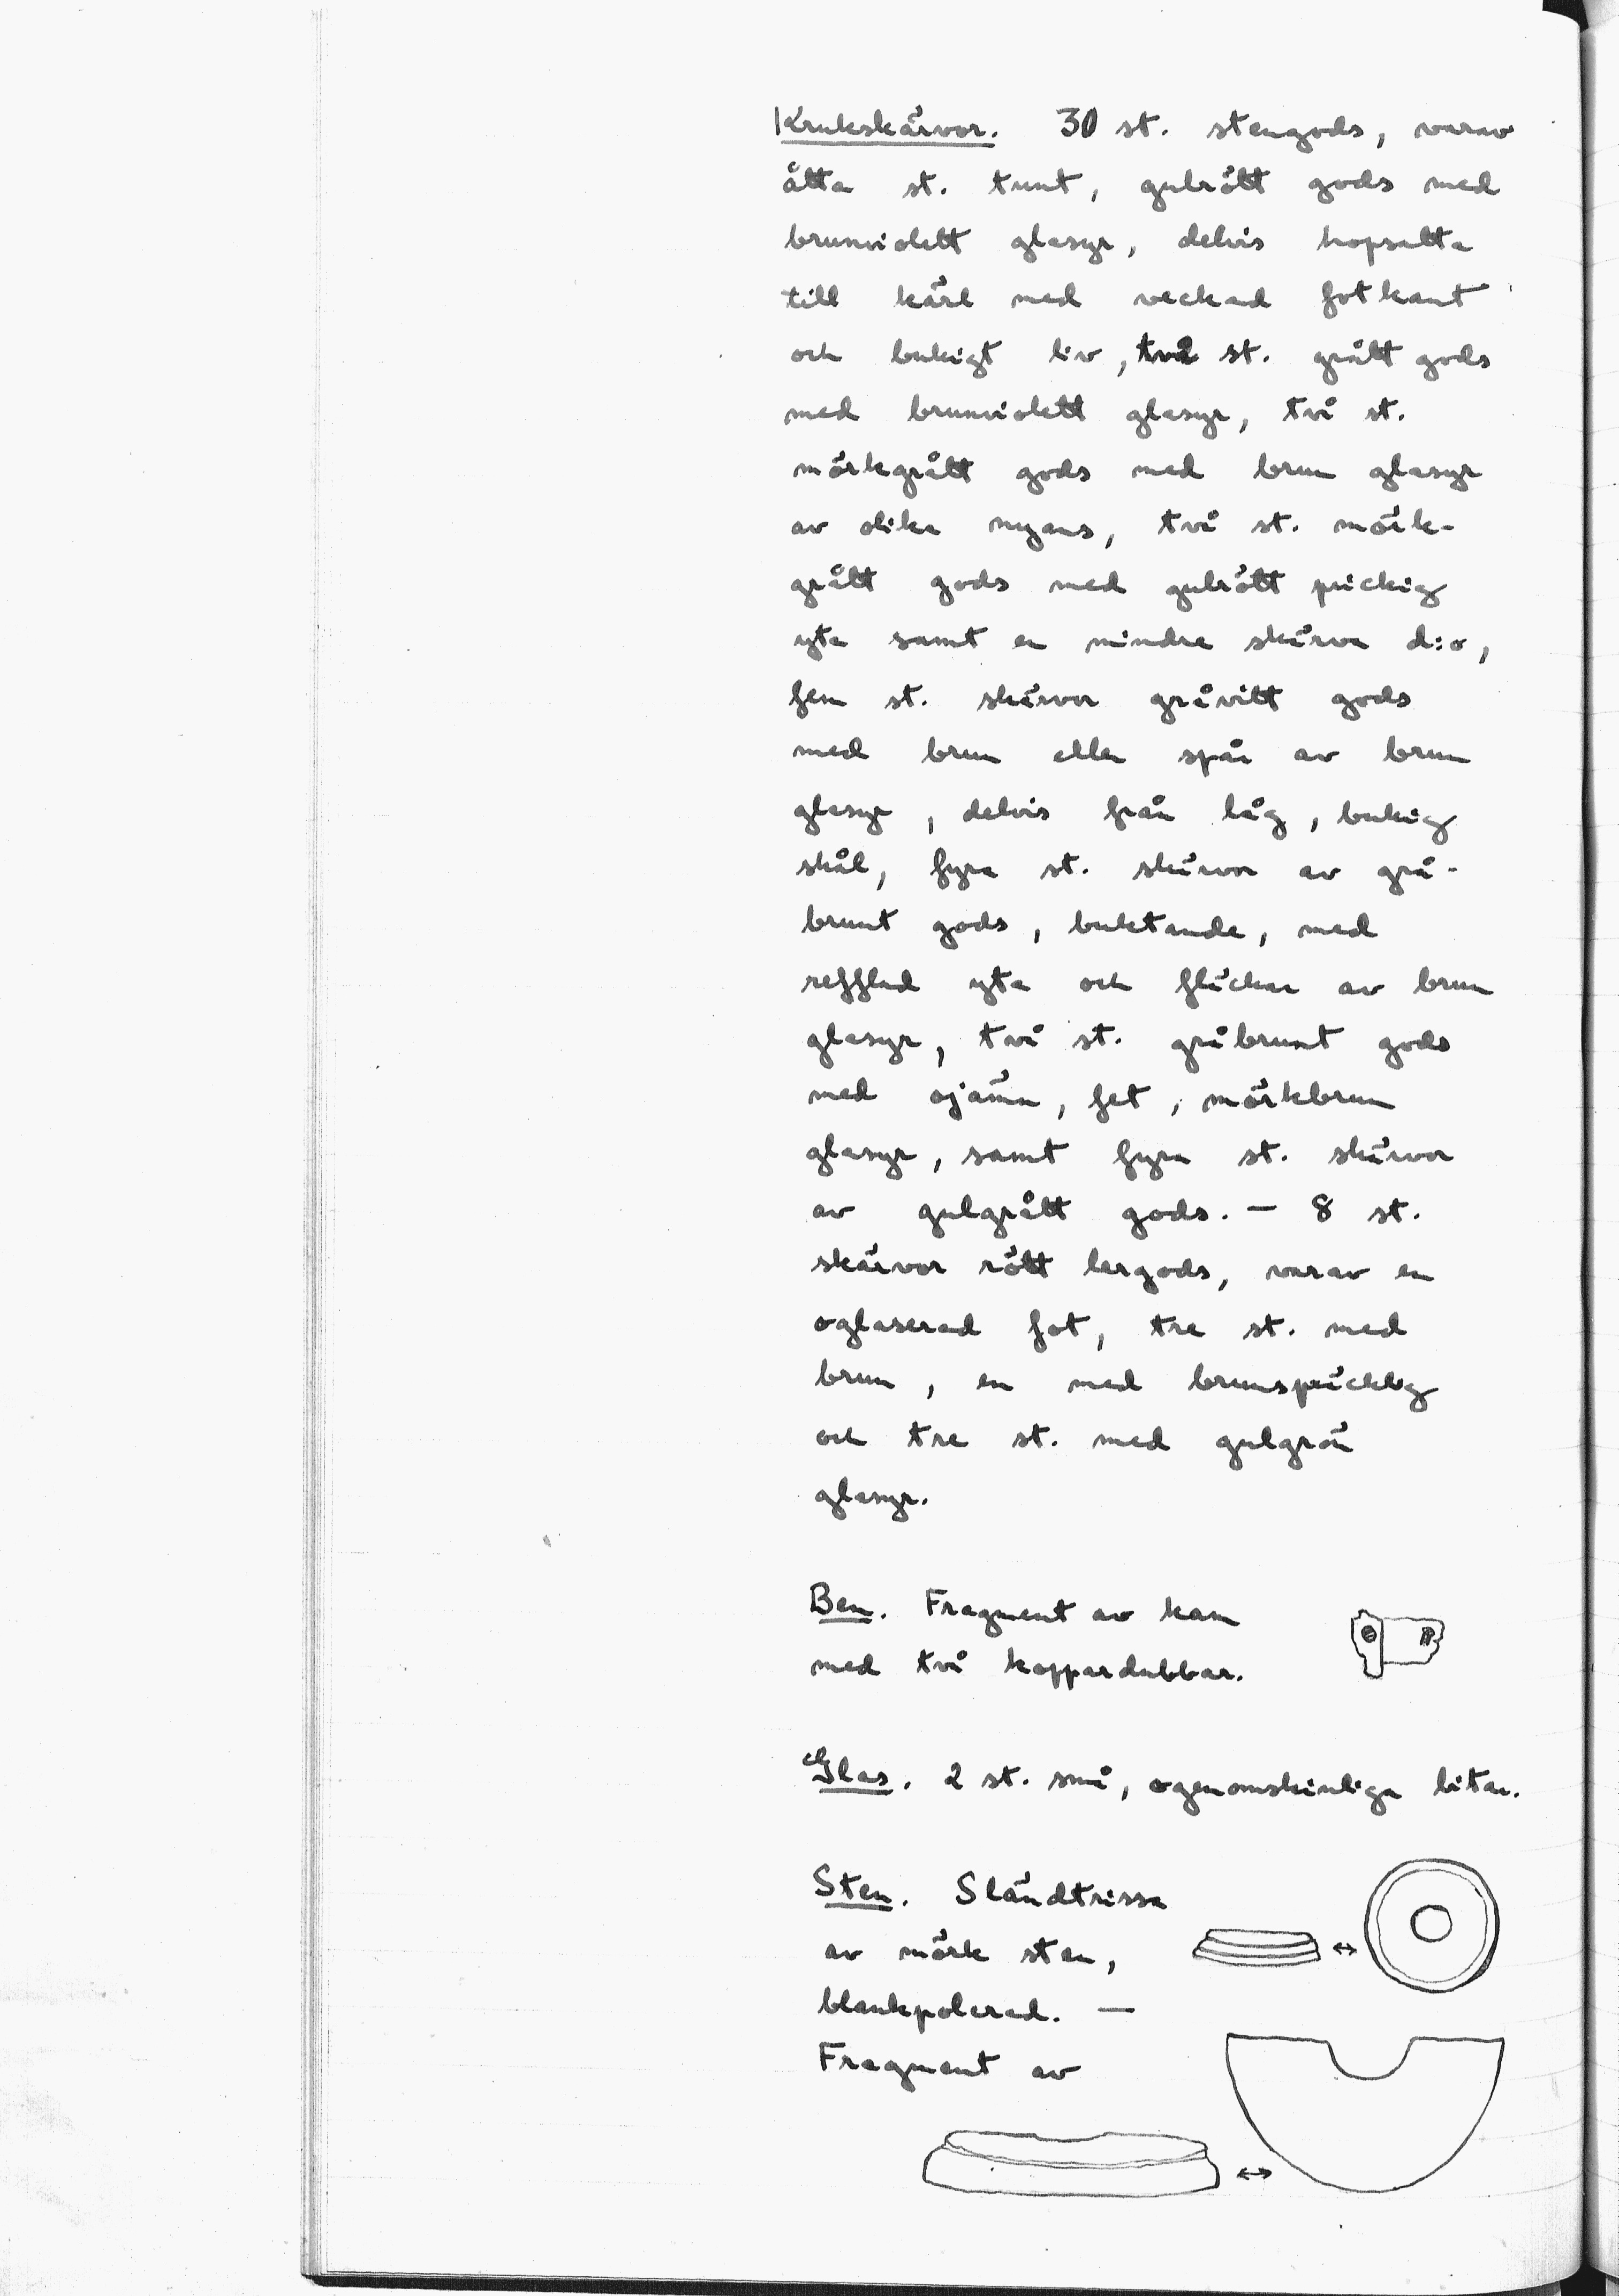 Krukskärvor. 30 st. stengods, varav
åtta st. tunt, gulrött gods med
brunviolett glasyr, delvis hopsatta
till kärl med veckad fotkant
och bukigt liv, två st. grått gods
med brunviolett glasyr, två st.
mörkgrått gods med brun glasyr
av olika nyans, två st. mörk-
grått gods med gulrött prickig
yta samt en mindre skärva d:o,
fem st. skärvor gråvitt gods
med brun eller spår av brun
glasyr, delvis från låg, bukig
skål, fyra st. skärvor av grå-
brunt gods, buktande, med
refflad yta och fläckar av brun
glasyr, två st. gråbrunt gods
med ojämn, fet, mörkbrun
glasyr, samt fyra st. skärvor
av gulgrått gods. — 8 st.
skärvor rött lergods, varav en
oglaserad fot, tre st. med
brun, en med brunspräcklig
och tre st. med gulgrön
glasyr.
Ben. Fragment av kam
med två koppardubbar.
Glas. 2 st. små, ogenomskinliga bitar.
Sten. Sländtrissa
av mörk sten,
blankpolerad. —
Fragment av